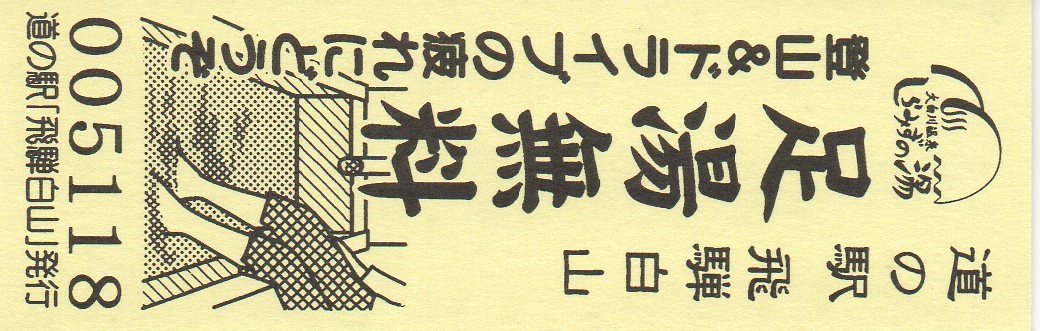 大白川温泉
しらみずの湯
道の駅 飛騨白山
足湯無料
登山&ドライブの疲れにどうぞ
005118
道の駅「飛騨白山」発行